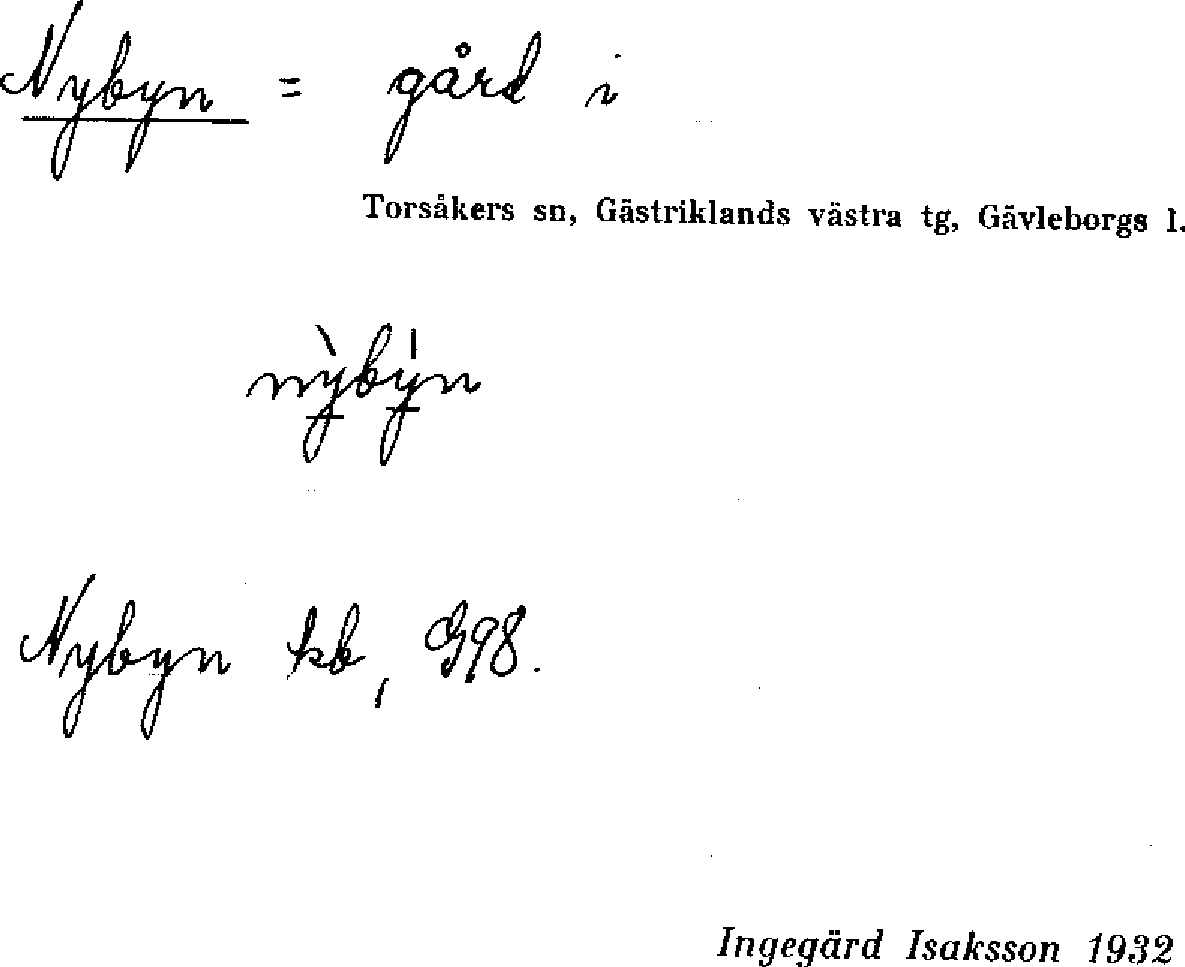 Nybyn = gård i
Torsåkers sn, Gästriklands västra tg, Gävleborgs l.
nỳbýn
Nybyn kb, G98.
Ingegärd Isaksson 1932